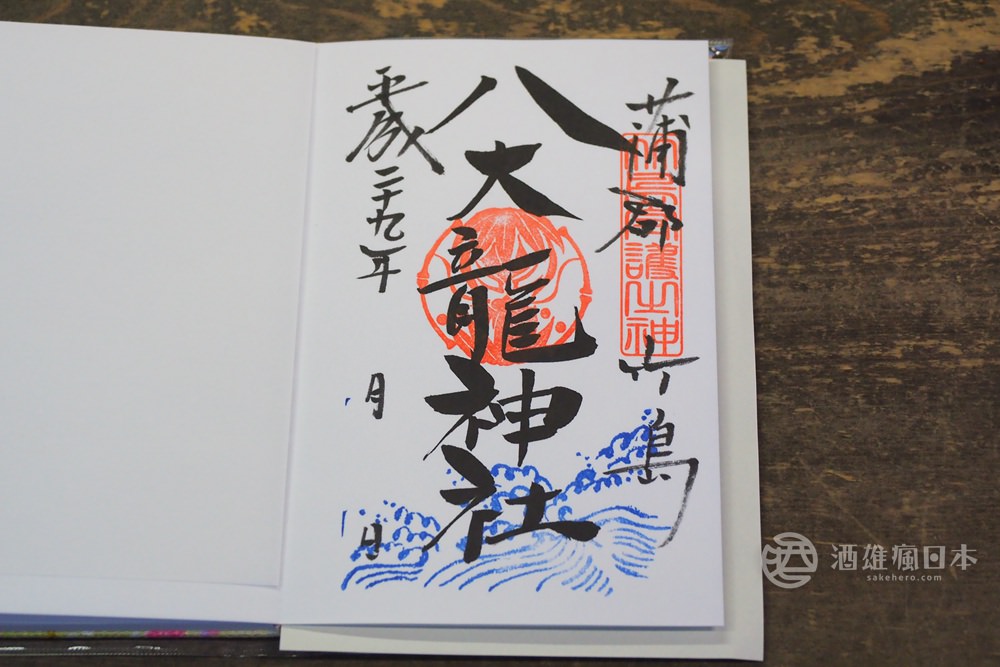 蒲郡 竹島
八大龍神社
平成二十九年 月 日
酒雄瘋日本
sakehero.com